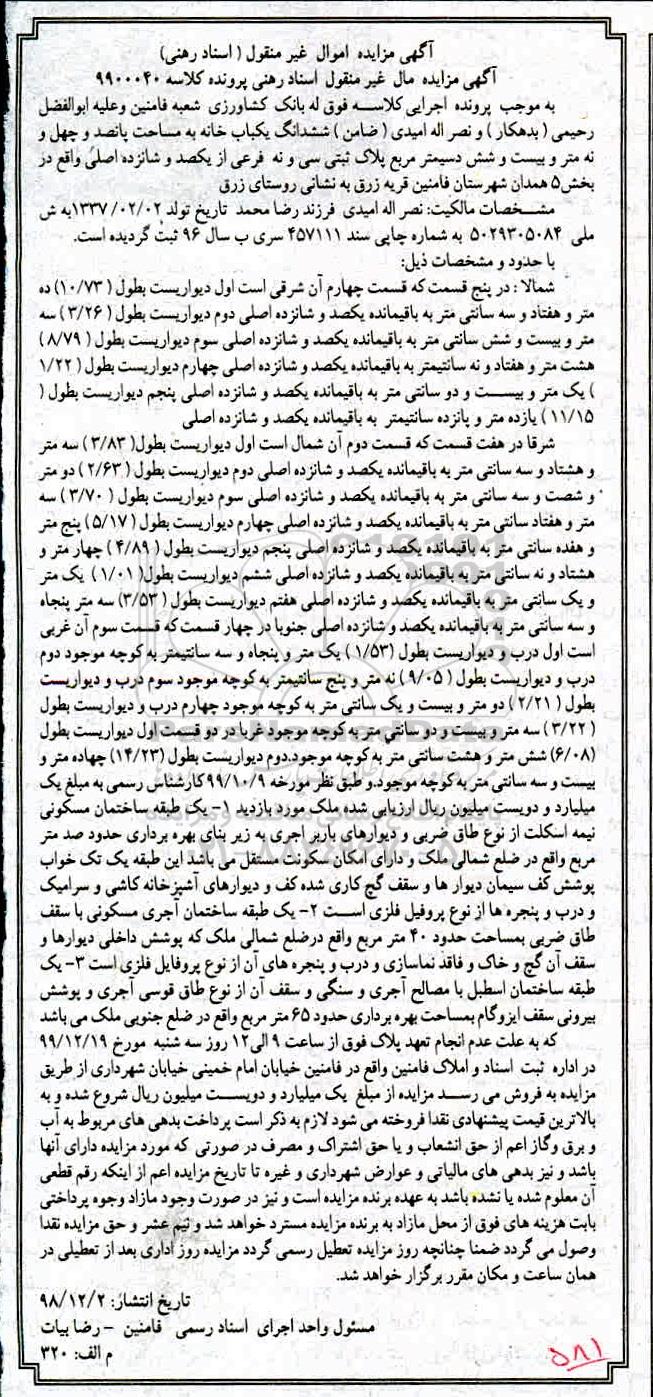 آگهی مزایده اموال غیر منقول ( اسناد رهنی)
آگهی مزایده مال غیر منقول اسناد رهنی پرونده کلاسه ۹۹۰۰۰۴۰
به موجب پرونده اجرایی کلاسه فوق له بانک کشاورزی شعبه فامنین وعلیه ابوالفضل
رحیمی ( بدهکار ) و نصر اله امیدی ( ضامن ) ششدانگ یکباب خانه به مساحت پانصد و چهل و
نه متر و بیست و شش دسیمتر مربع پلاک ثبتی سی و نه فرعی از یکصد و شانزده اصلی واقع در
بخش۵ همدان شهرستان فامنین قریه زرق به نشانی روستای زرق
مشخصات مالکیت: نصر اله امیدی فرزند رضا محمد تاریخ تولد ۱۳۳۷/۰۲/۰۲به ش
ملی ۵۰۲۹۳۰۵۰۸۴ به شماره چاپی سند ۴۵۷۱۱۱ سری ب سال ۹۶ ثبت گردیده است.
با حدود و مشخصات ذیل:
شمالا : در پنج قسمت که قسمت چهارم آن شرقی است اول دیواریست بطول (۱۰/۷۳) ده
متر و هفتاد و سه سانتی متر به باقیمانده یکصد و شانزده اصلی دوم دیواریست بطول (۳/۲۶ ) سه
متر و بیست و شش سانتی متر به باقیمانده یکصد و شانزده اصلی سوم دیواریست بطول ( ۸/۷۹)
هشت متر و هفتاد و نه سانتیمتر به باقیمانده یکصد و شانزده اصلی چهارم دیواریست بطول ( ۱/۲۲
) یک متر و بیست و دو سانتی متر به باقیمانده یکصد و شانزده اصلی پنجم دیواریست بطول (
۱۱/۱۵ ) یازده متر و پانزده سانتیمتر به باقیمانده یکصد و شانزده اصلی
شرقا در هفت قسمت که قسمت دوم آن شمال است اول دیواریست بطول( ۳/۸۳ ) سه متر
و هشتاد و سه سانتی متر به باقیمانده یکصد و شانزده اصلی دوم دیواریست بطول ( ۲/۶۳ ) دو متر
و شصت و سه سانتی متر به باقیمانده یکصد و شانزده اصلی سوم دیواریست بطول ( ۳/۷۰ ) سه
متر و هفتاد سانتی متر به باقیمانده یکصد و شانزده اصلی چهارم دیواریست بطول ( ۵/۱۷ ) پنج متر
و هفده سانتی متر به باقیمانده یکصد و شانزده اصلی پنجم دیواریست بطول ( ۴/۸۹ ) چهار متر و
هشتاد و نه سانتی متر به باقیمانده یکصد و شانزده اصلی ششم دیواریست بطول( ۱/۰۱ ) یک متر
و یک سانتی متر به باقیمانده یکصد و شانزده اصلی هفتم دیواریست بطول ( ۳/۵۳) سه متر پنجاه
و سه سانتی متر به باقیمانده یکصد و شانزده اصلی جنوبا در چهار قسمت که قسمت سوم آن غربی
است اول درب و دیواریست بطول (۱/۵۳ ) یک متر و پنجاه و سه سانتیمتر به کوچه موجود دوم
درب و دیواریست بطول ( ۹/۰۵ ) نه متر و پنج سانتیمتر به کوچه موجود سوم درب و دیواریست
بطول ( ۲/۲۱ ) دو متر و بیست و یک سانتی متر به کوچه موجود چهارم درب و دیواریست بطول
( ۳/۲۲ ) سه متر و بیست و دو سانتی متر به کوچه موجود غربا در دو قسمت اول دیواریست بطول
(۶/۰۸) شش متر و هشت سانتی متر به کوچه موجود.دوم دیواریست بطول (۱۴/۲۳) چهاده متر و
بیست و سه سانتی متر به کوچه موجود.و طبق نظر مورخه ۹۹/۱۰/۹کارشناس رسمی به مبلغ یک
میلیارد و دویست میلیون ریال ارزیابی شده ملک مورد بازدید ۱- یک طبقه ساختمان مسکونی
نیمه اسکلت از نوع طاق ضربی و دیوارهای باربر اجری به زیر بنای بهره برداری حدود صد متر
مربع واقع در ضلع شمالی ملک و دارای امکان سکونت مستقل می باشد این طبقه یک تک خواب
پوشش کف سیمان دیوار ها و سقف گچ کاری شده کف و دیوارهای آشپزخانه کاشی و سرامیک
و درب و پنجره ها از نوع پروفیل فلزی است ۲- یک طبقه ساختمان آجری مسکونی با سقف
طاق ضربی بمساحت حدود ۴۰ متر مربع واقع درضلع شمالی ملک که پوشش داخلی دیوارها و
سقف آن گچ و خاک و فاقد نماسازی و درب و پنجره های آن از نوع پروفایل فلزی است ۳- یک
طبقه ساختمان اسطبل با مصالح آجری و سنگی و سقف آن از نوع طاق قوسی آجری و پوشش
بیرونی سقف ایزوگام بمساحت بهره برداری حدود ۶۵ متر مربع واقع در ضلع جنوبی ملک می باشد
که به علت عدم انجام تعهد پلاک فوق از ساعت ۹ الی۱۲ روز سه شنبه مورخ ۹۹/۱۲/۱۹
در اداره ثبت اسناد و املاک فامنین واقع در فامنین خیابان امام خمینی خیابان شهرداری از طریق
مزایده به فروش می رسد مزایده از مبلغ یک میلیارد و دویست میلیون ریال شروع شده و به
بالاترین قیمت پیشنهادی نقدا فروخته می شود لازم به ذکر است پرداخت بدهی های مربوط به آب
و برق وگاز اعم از حق انشعاب و یا حق اشتراک و مصرف در صورتی که مورد مزایده دارای آنها
باشد و نیز بدهی های مالیاتی و عوارض شهرداری و غیره تا تاریخ مزایده اعم از اینکه رقم قطعی
آن معلوم شده یا نشده باشد به عهده برنده مزایده است و نیز در صورت وجود مازاد وجوه پرداختی
بابت هزینه های فوق از محل مازاد به برنده مزایده مسترد خواهد شد و نیم عشر و حق مزایده نقدا
وصول می گردد ضمنا چنانچه روز مزایده تعطیل رسمی گردد مزایده روز اداری بعد از تعطیلی در
همان ساعت و مکان مقرر برگزار خواهد شد.
تاریخ انتشار: ۹۸/۱۲/۲
مسئول واحد اجرای اسناد رسمی فامنین – رضا بیات
م الف: ۳۲۰
۵۸۱